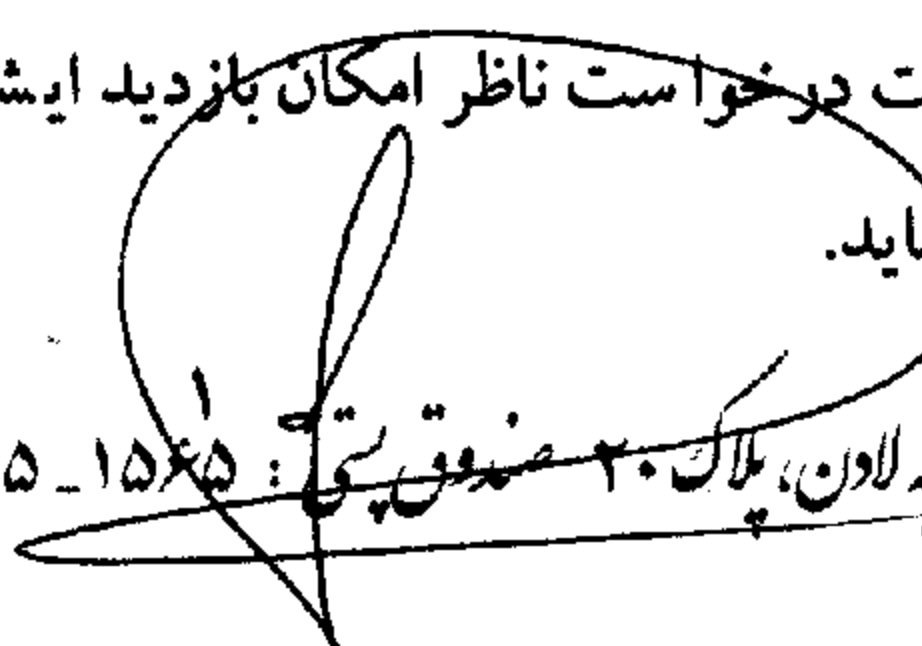 ت درخواست ناظر امکان بازدید ایش
ماید.
۱
لادن، پلاک ۲۰ صندوق پستی: ۱۵۶۵ـ۵